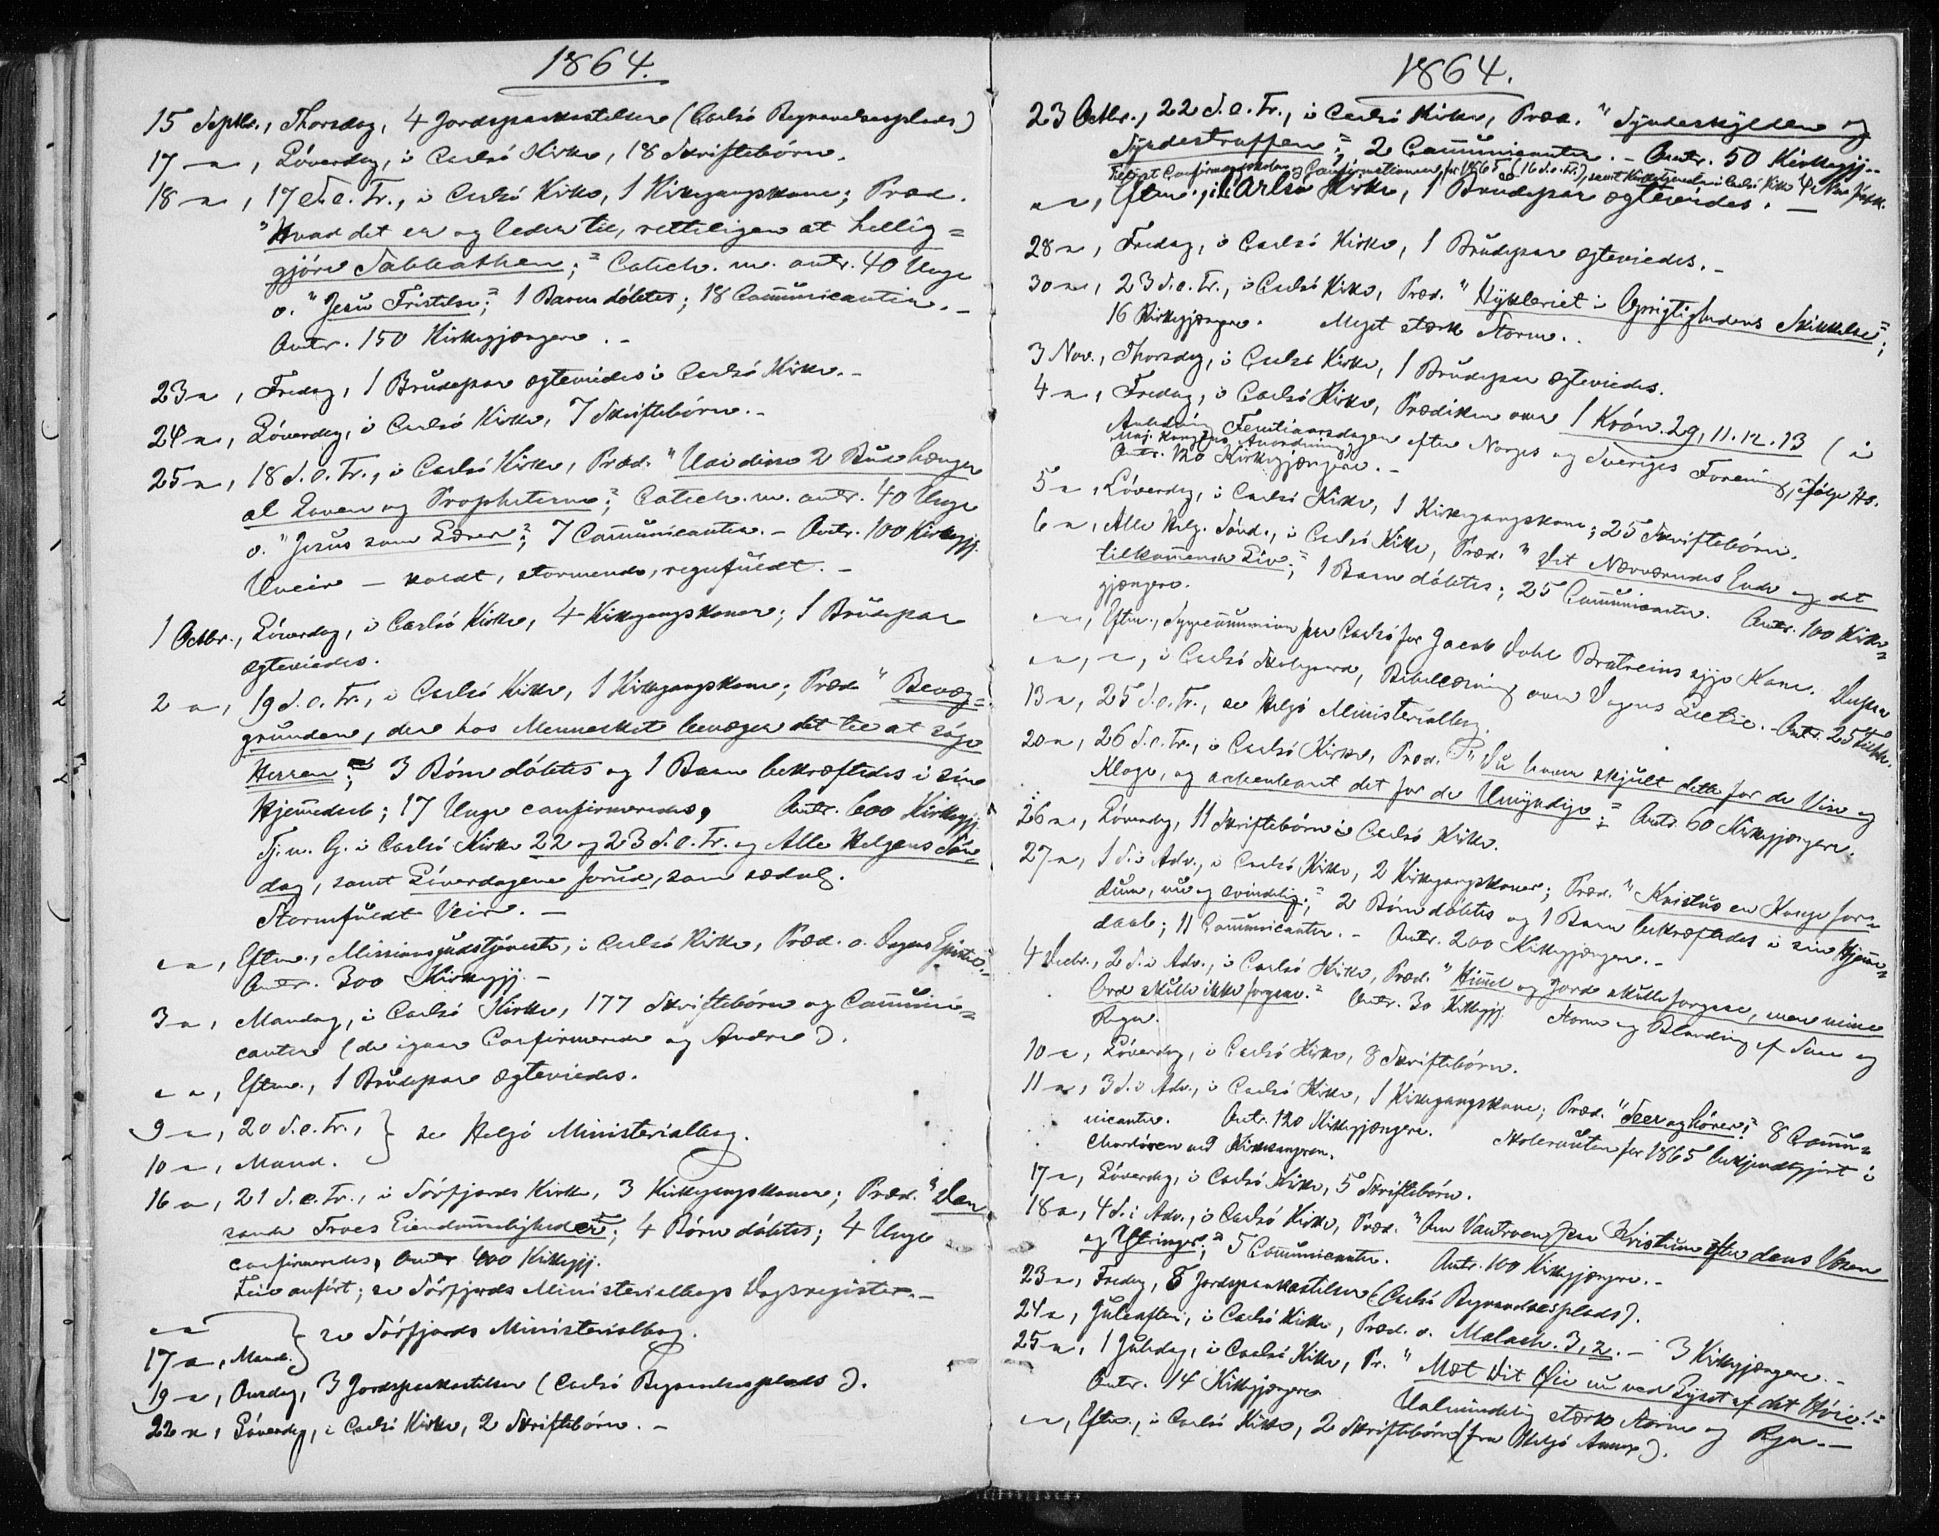 1864.
15 Septbr., Thorsdag, 4 Jordspaakastelser (Carlsö Begravelsesplads)
17 – , Löverdag, i Carlsö Kirke, 18 Skriftebörn.
18 – , 17 S. e. Tr., i Carlsö Kirke, 1 Kirkegangskone; Præd.
"Hvad det er og leder til, retteligen at hellig=
gjöre Sabbathen;" Catech. m. antr. 40 Unge
o. "Jesu Fristelse;" 1 Barn döbtes; 18 Communicanter. –
Antr. 150 Kirkegjængere. –
23 – , Fredag, 1 Brudepar ægteviedes i Carlsö Kirke. –
24 – , Löverdag, i Carlsö Kirke, 7 Skriftebörn. –
25 – , 18 S. e. Tr., i Carlsö Kirke, Præd. "Udi disse 2 Bud hænger
al Loven og Propheterne;" Catech. m. antr. 40 Unge
o. "Jesus som Lærer;" 7 Communicanter. – Antr. 100 Kirkegj.
Uveir – koldt, stormende, regnfuldt. –
1 Octbr., Löverdag, i Carlsö Kirke, 4 Kirkegangskoner; 1 Brudepar
ægteviedes.
2 – , 19 S. e. Tr., i Carlsö Kirke, 1 Kirkegangskone; Præd. "Bevæg=
grundene, der hos Mennesket bevæger det til at söge
Herren;" 3 Börn döbtes og 1 Barn bekræftedes i sin
Hjemmedaab; 17 Unge confirmeredes, Antr. 600 Kirkegj.
Tj. m. G. i Carlsö Kirke 22 og 23 S. e. Tr. og Alle Helgens Sön=
dag, samt Löverdagene forud, som sædvl.
Stormfuldt Veir. –
– – , Eftm., Missionsgudstjeneste, i Carlsö Kirke, Præd. o. Dagens Epistel. –
Antr. 300 Kirkegj. –
3 – , Mandag, i Carlsö Kirke, 177 Skriftebörn og Communi=
canter (de igaar Confirmerede og Andre).
– – , Eftm., 1 Brudepar ægteviedes.
9 – , 20 S. e. Tr., } se Helgö Ministerialbog.
10 – , Mand.
16 – , 21 S. e. Tr., i Sörfjords Kirke, 3 Kirkegangskoner; Præd. "Den
sande Troes Eiendommeligheder;" 4 Börn döbtes; 4 Unge
confirmeredes, Antr. 400 Kirkegj.
Feil anfört; se Sörfjords Ministerialbogs Dagsregister. –
– – } se Sörfjords Ministerialbog.
17 – , Mand.
19 – , Onsdag, 3 Jordspaakastelser (Carlsö Begravelsesplads).
22 – , Löverdag, i Carlsö Kirke, 2 Skriftebörn. –
1864.
23 Octbr., 22 S. e. Tr., i Carlsö Kirke, Præd. "Syndeskylden og
Syndestraffen;" 2 Communicanter. – Antr. 50 Kirkegj. –
Confirmationen for 1865 (16 S. e. Tr.), samt i Carlsö Kirke
– – , Eftm., i Carlsö Kirke, 1 Brudepar ægteviedes. –
28 – , Fredag, i Carlsö Kirke, 1 Brudepar ægteviedes. –
30 – , 23 S. e. Tr., i Carlsö Kirke, Præd. "Hykleriet i Oprigtighedens Skikkelse;"
16 Kirkegjængere. Meget stærk Storm. .
3 Nov., Thorsdag, i Carlsö Kirke, 1 Brudepar ægteviedes.
4 – , Fredag, i Carlsö Kirke, Prædiken over 1 Krön. 29, 11. 12. 13 (i
Anledning Femtiaarsdagen efter Norges og Sveriges Forening, ifölge Hs.
Maj. Kongens Anordning)
Antr. 120 Kirkegjængere. –
5 – , Löverdag, i Carlsö Kirke, 1 Kirkegangskone; 25 Skriftebörn.
6 – , Alle Helg. Sönd., i Carlsö Kirke, Præd. "Det Nærværendes Ende og det
tilkommende Liv;" 1 Barn döbtes; 25 Communicanter. Antr. 100 Kirke=
gjængere.
– – , Eftm., Sygecommunion paa Carlsö for Jacob Dahl Bratreins syge Kone.
– – , – , i Carlsö Skolegaard, Bibellæsning over Dagens Lectie. Antr. 25
13 – , 25 S. e. Tr., se Helgö Ministerialbog.
20 – , 26 S. e. Tr., i Carlsö Kirke, Præd. "Du haver skjult dette for de Vise og
Kloge, og aabenbaret det for de Umyndige;" Antr. 60 Kirkegjængere.
26 – , Löverdag, 11 Skriftebörn i Carlsö Kirke.
27 – , 1 S. i Adv., i Carlsö Kirke, 2 Kirkegangskoner; Præd. "Kristus en Konge for=
dum, nu og evindelig;" 2 Börn döbtes og 1 Barn bekræftedes i sin Hjemme=
daab; 11 Communicanter. – Antr. 200 Kirkegjængere. –
4 Decbr., 2 S. i Adv., i Carlsö Kirke, Præd. "Himmel og Jord skulle forgaae, men mine
Ord skulle ikke forgaae." Antr. 30 Kirkegj. Storm og Blanding af Snee og
Regn.
10 – , Löverdag, i Carlsö Kirke, 8 Skriftebörn.
11 – , 3 S. i Adv., i Carlsö Kirke, 1 Kirkegangskone; Præd. "Seer og hörer!" 8 Commu=
nicanter. Antr. 120 Kirkegjængere. Skoleruten for 1865 bekjendtgjort i
Chordören ved Kirkesangeren.
17 – , Löverdag, i Carlsö Kirke, 5 Skriftebörn.
18 – , 4 S. i Adv., i Carlsö Kirke, Præd. "Om Vantroen paa Kristum efter dens Væsen
og Yttringer;" 5 Communicanter. Antr. 100 Kirkegjængere. –
23 – , Fredag, 8 Jordspaakastelser (Carlsö Begravelsesplads).
24 – , Juleaften, i Carlsö Kirke, Præd. o. Malach. 3, 2. – 3 Kirkegjængere. –
25 – , 1 Juledag, i Carlsö Kirke, Pr. "Mæt Dit Öie nu ved Lyset af det Höie!"
Antr. 14 Kirkegjængere Ualmindelig stærk Storm og Regn. –
– – , Eftm., i Carlsö Kirke, 2 Skriftebörn (fra Helgö Annex).